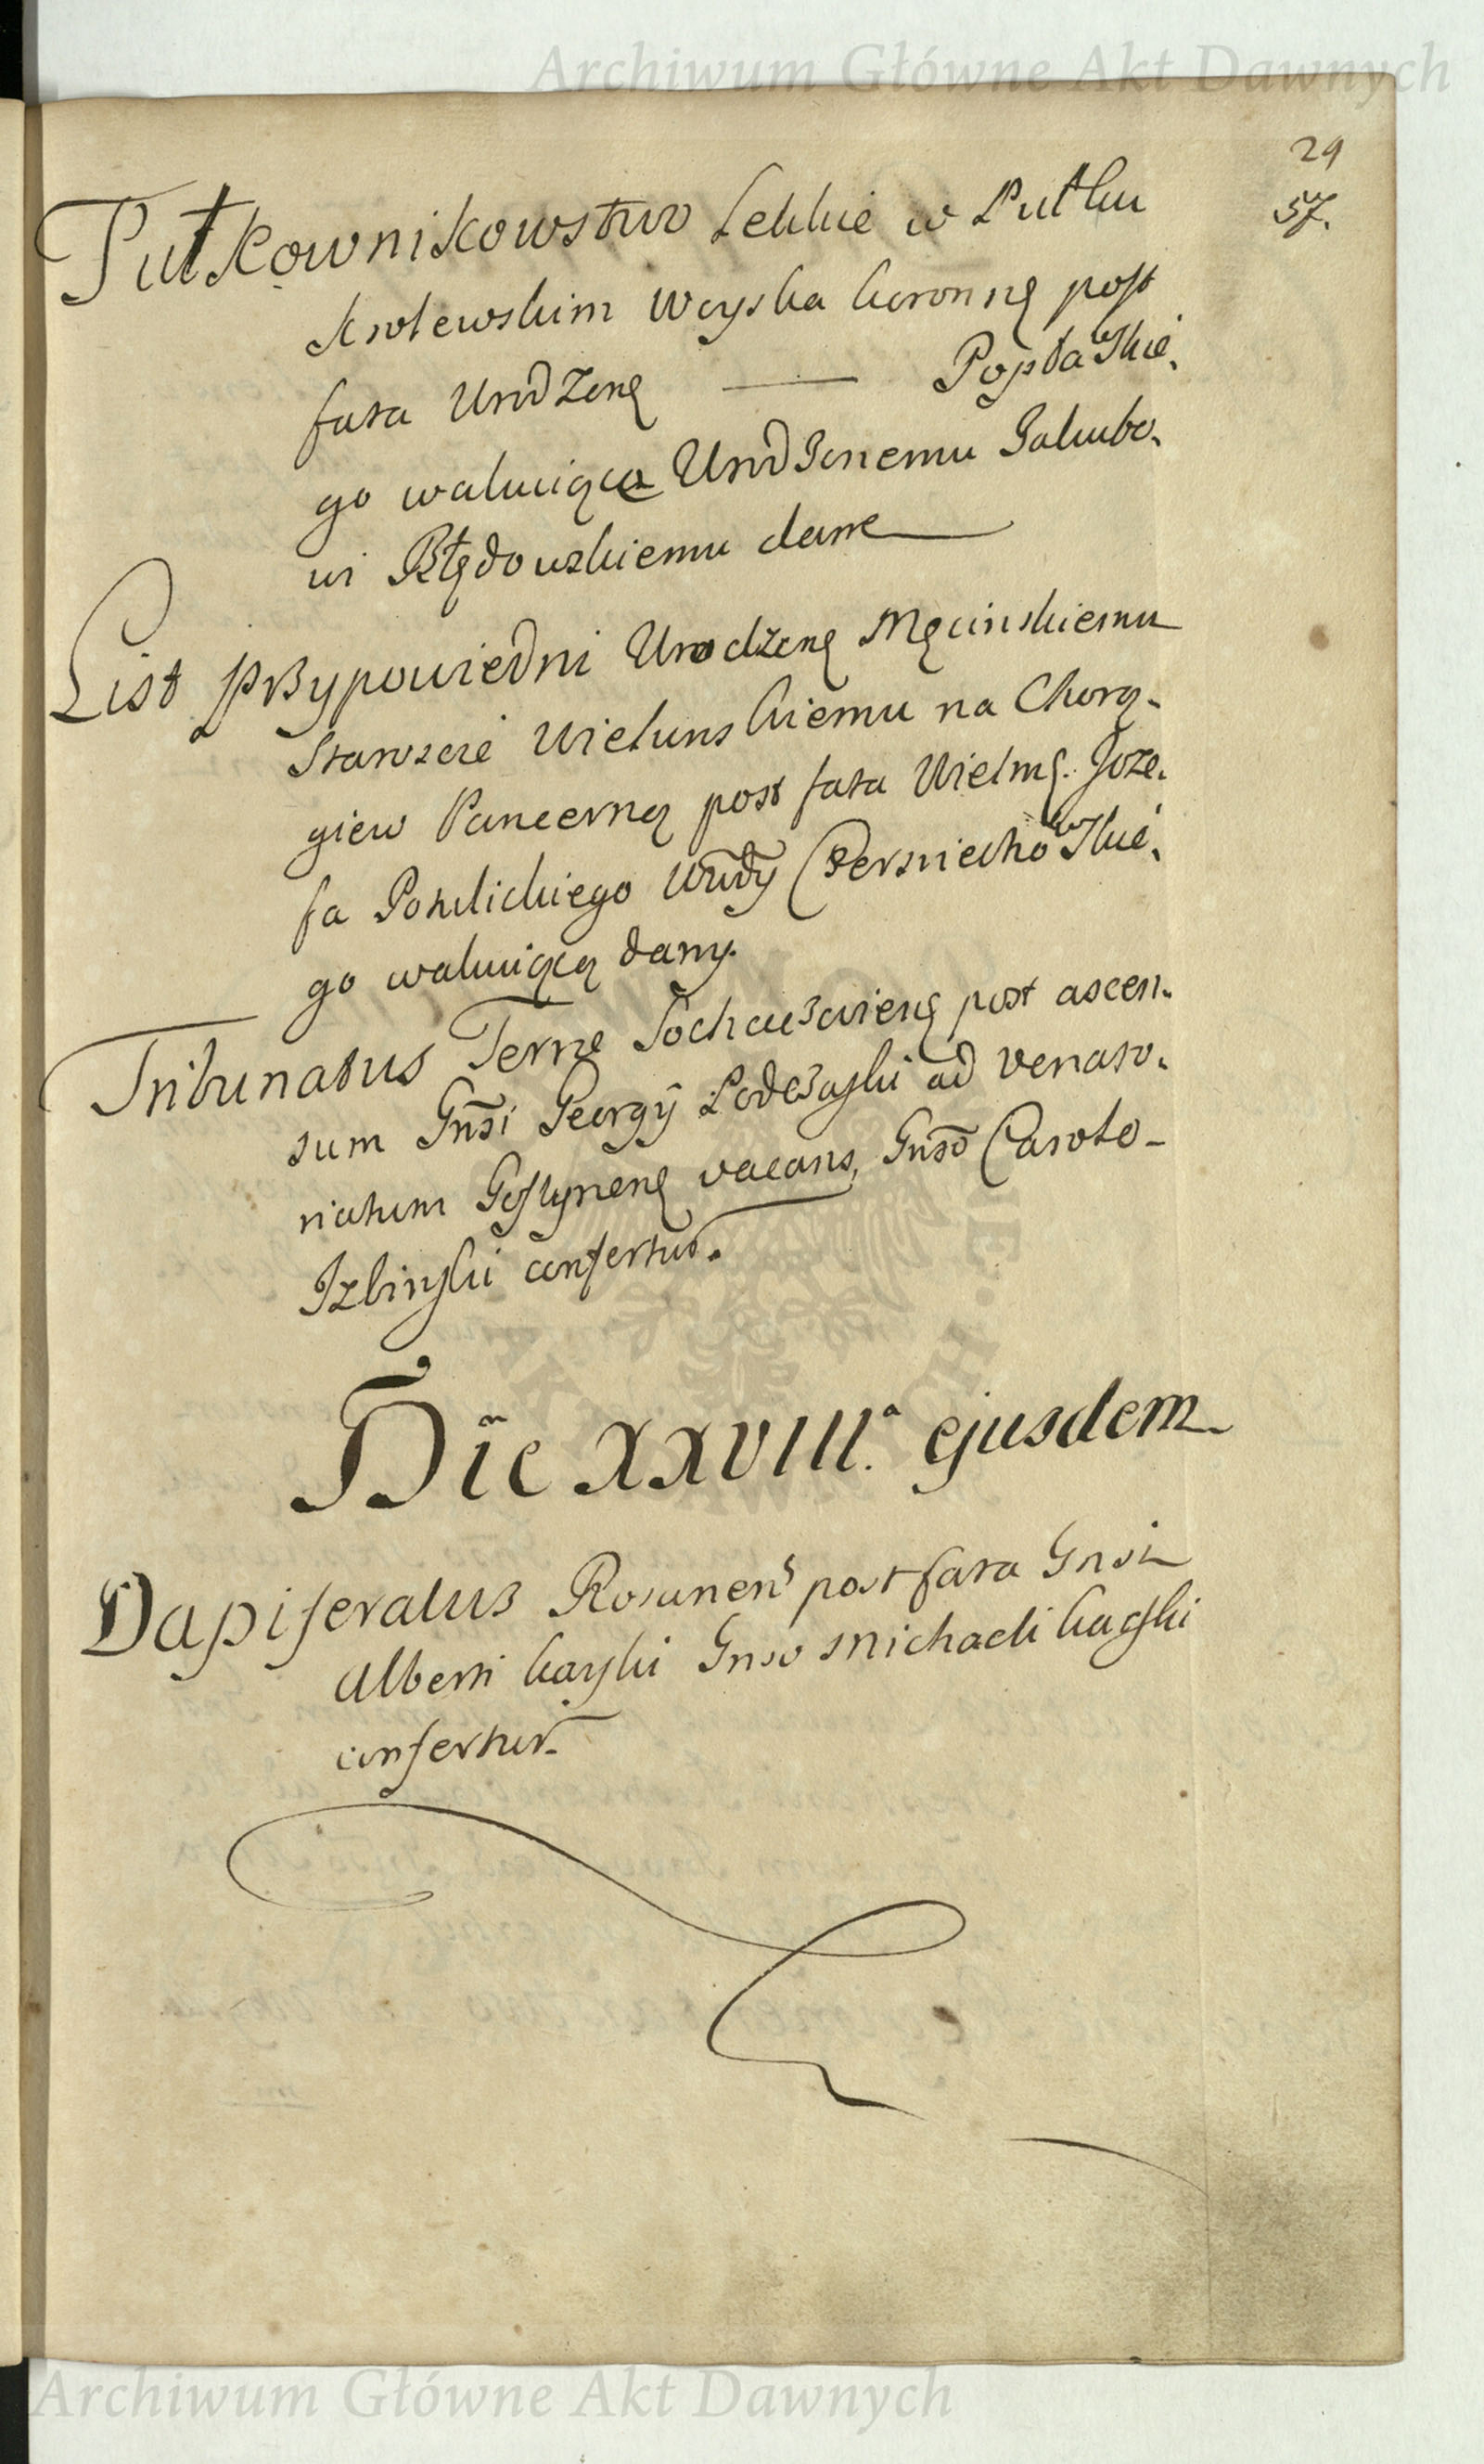 Archiwum Główne Akt Dawnych
29
57.
Pułkownikowstwo Lekkie w Pułku
Krolewskim Woyska Koronnę post
fata Urodzonę — Popławskie.
go wakuiące Urodzonemu Jakubo.
wi Błędowskiemu dane
List Przypowiedni Urodzonę Męcinskiemu
Staroscie Wielunskiemu na Chorą-
giew Pancerną post fata Wielmę. Joze.
fa Potulickiego Wdy Czerniechowskie.
go wakuiącą dany.
Tribunatus Terrę Sochaczewienę post ascen.
sum Gnsi Georgÿ Łodczaski ad venato.
riatum Gostynenę vacans, Gnso Carolo-
Izbinski confertur.
Die XXVIII.a ejusdem
Dapiferatus Rosanens post fata Gnsi
Alberti Karski Gnso Michaeli Karski
confertur.
Archiwum Główne Akt Dawnych